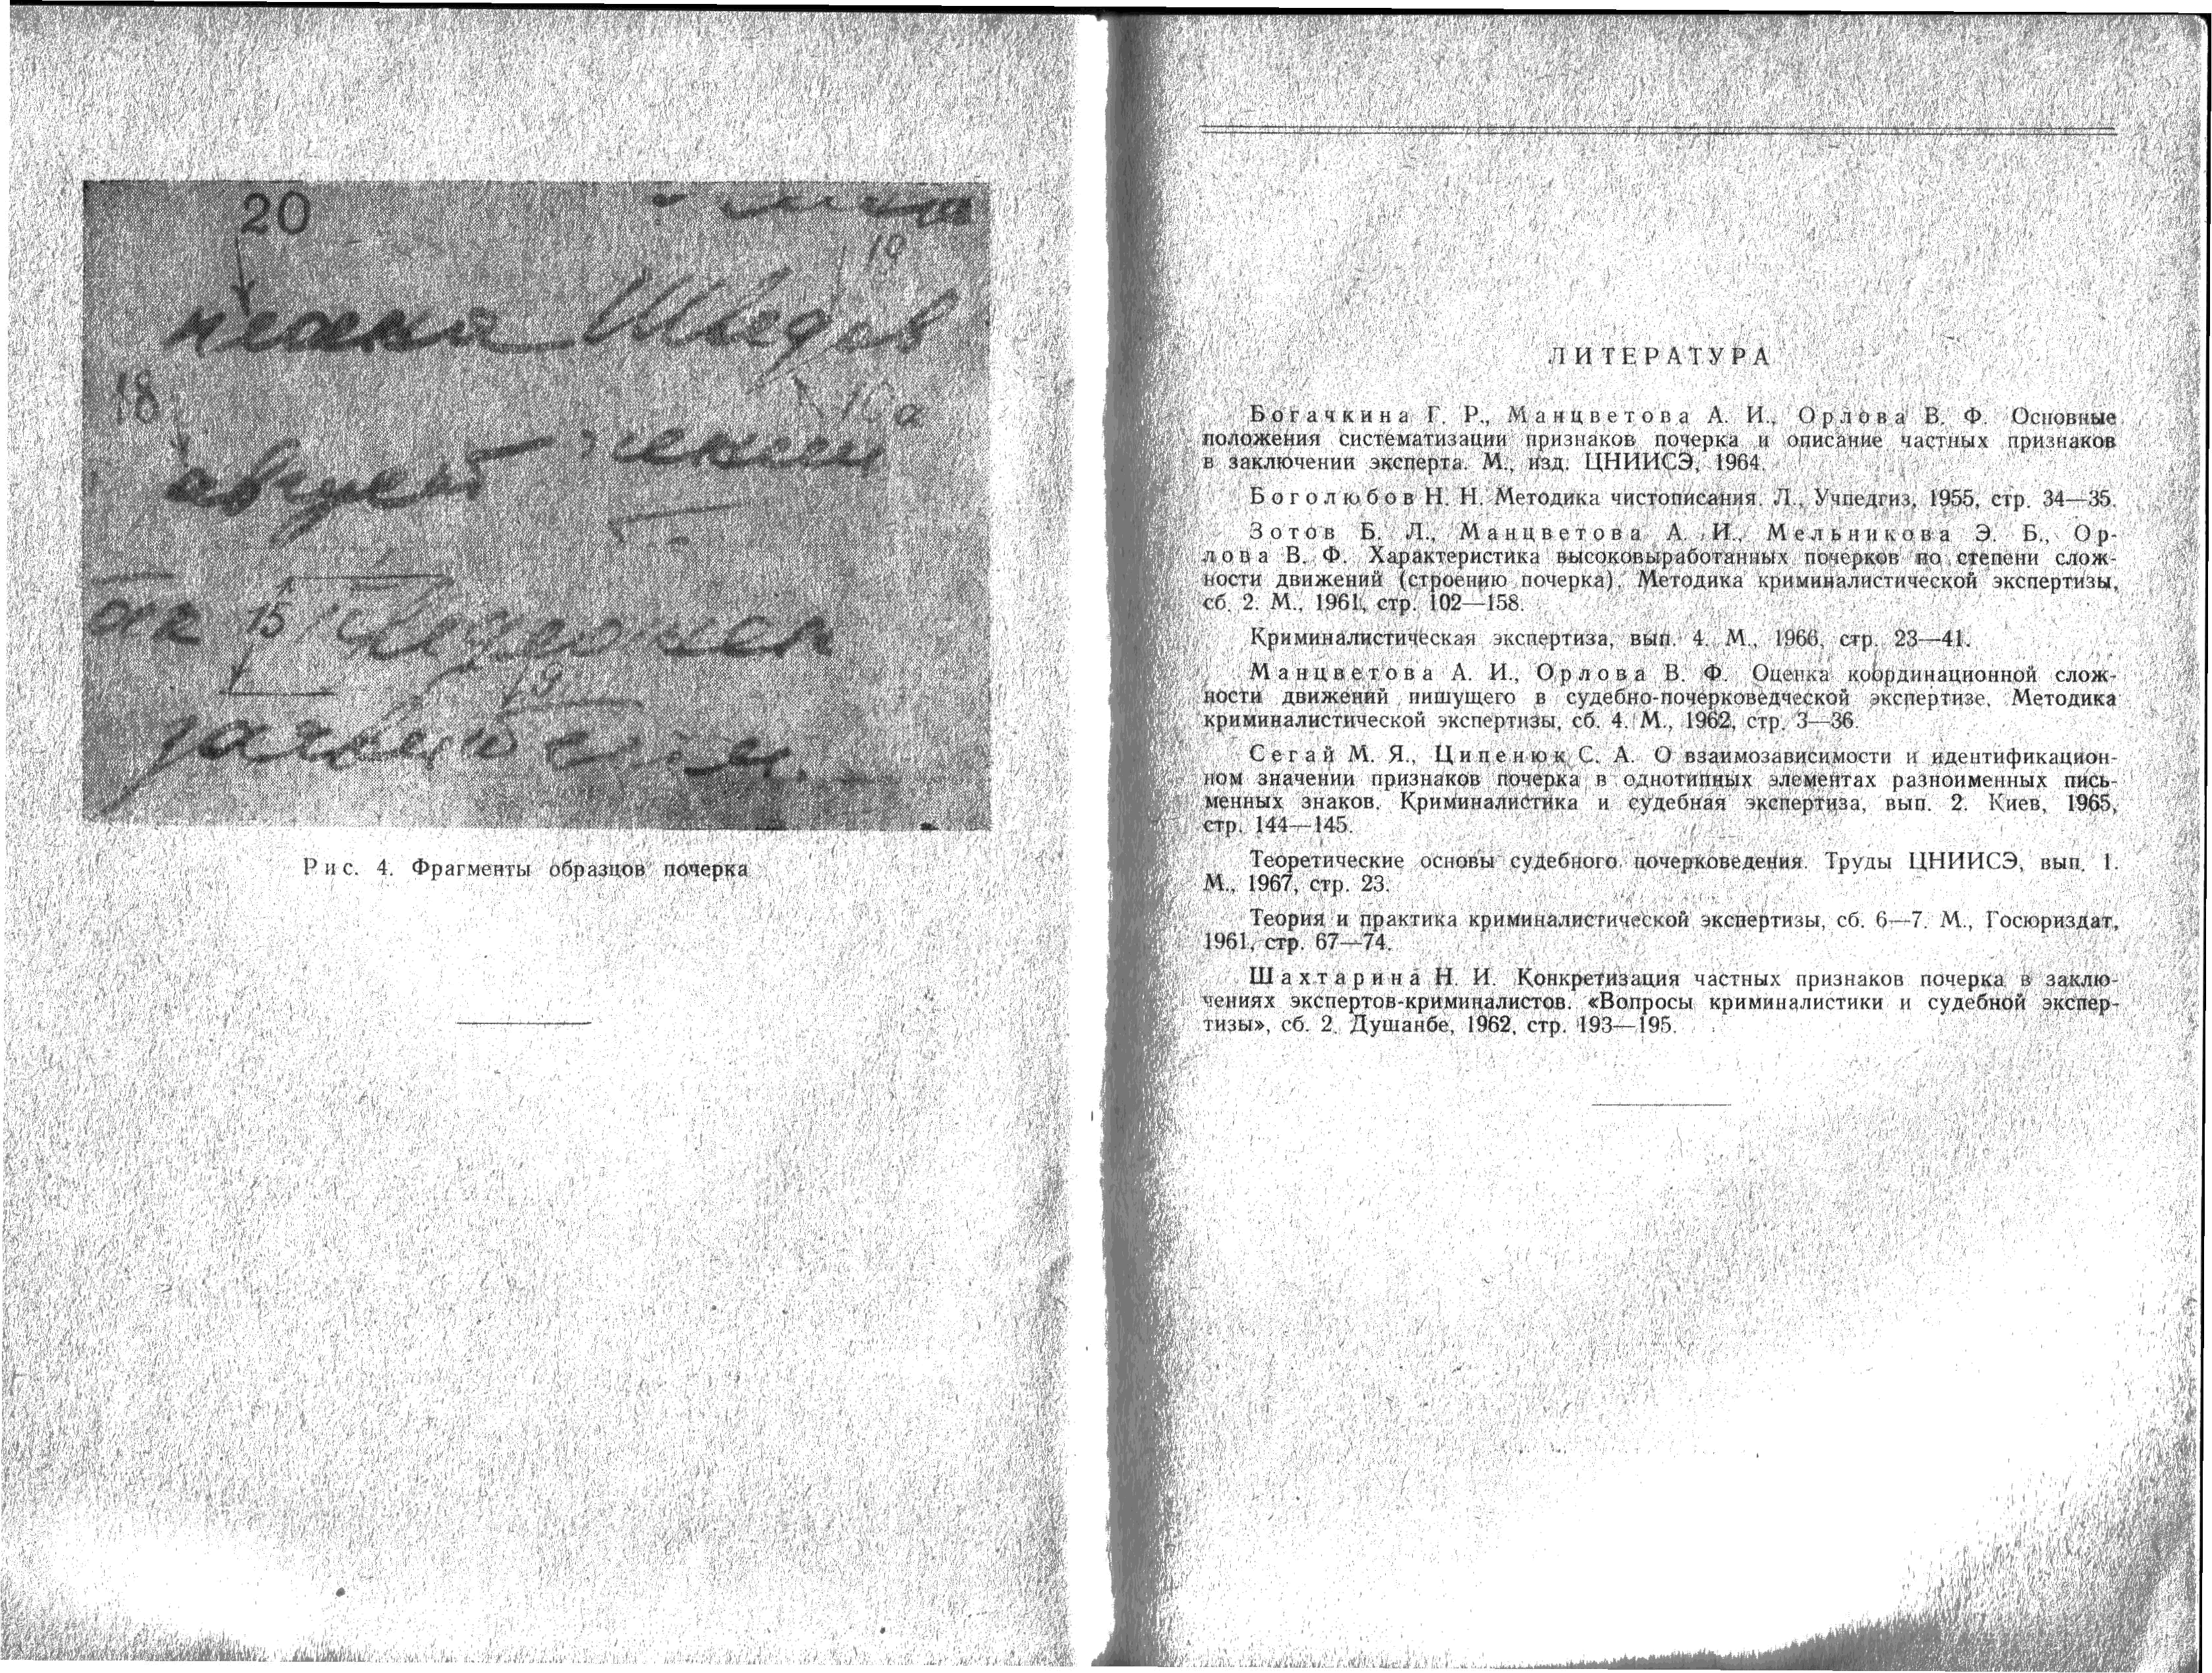 20
10
Шведов
18
10а
август
15
9
Рис. 4. Фрагменты образцов почерка
ЛИТЕРАТУРА
Богачкина Г. Р., Манцветова А. И., Орлова В. Ф. Основные
положения систематизации признаков почерка и описание частных признаков
в заключении эксперта. М., изд. ЦНИИСЭ, 1964.
Боголюбов Н. Н. Методика чистописания. Л., Учпедгиз, 1955, стр. 34—35.
Зотов Б. Л., Манцветова А. И., Мельникова Э. Б., Ор-
лова В. Ф. Характеристика высоковыработанных почерков по степени слож-
ности движений (строению почерка). Методика криминалистической экспертизы,
сб. 2. М., 1961, стр. 102—158.
Криминалистическая экспертиза, вып. 4. М., 1966, стр. 23—41.
Манцветова А. И., Орлова В. Ф. Оценка координационной слож-
ности движений пишущего в судебно-почерковедческой экспертизе. Методика
криминалистической экспертизы, сб. 4. М., 1962, стр. 3—36.
Сегай М. Я., Ципенюк С. А. О взаимозависимости и идентификацион-
ном значении признаков почерка в однотипных элементах разноименных пись-
менных знаков. Криминалистика и судебная экспертиза, вып. 2. Киев, 1965,
стр. 144—145.
Теоретические основы судебного почерковедения. Труды ЦНИИСЭ, вып. 1.
М., 1967, стр. 23.
Теория и практика криминалистической экспертизы, сб. 6—7. М., Госюриздат,
1961, стр. 67—74.
Шахтарина Н. И. Конкретизация частных признаков почерка в заклю-
чениях экспертов-криминалистов. «Вопросы криминалистики и судебной экспер-
тизы», сб. 2. Душанбе, 1962, стр. 193—195.